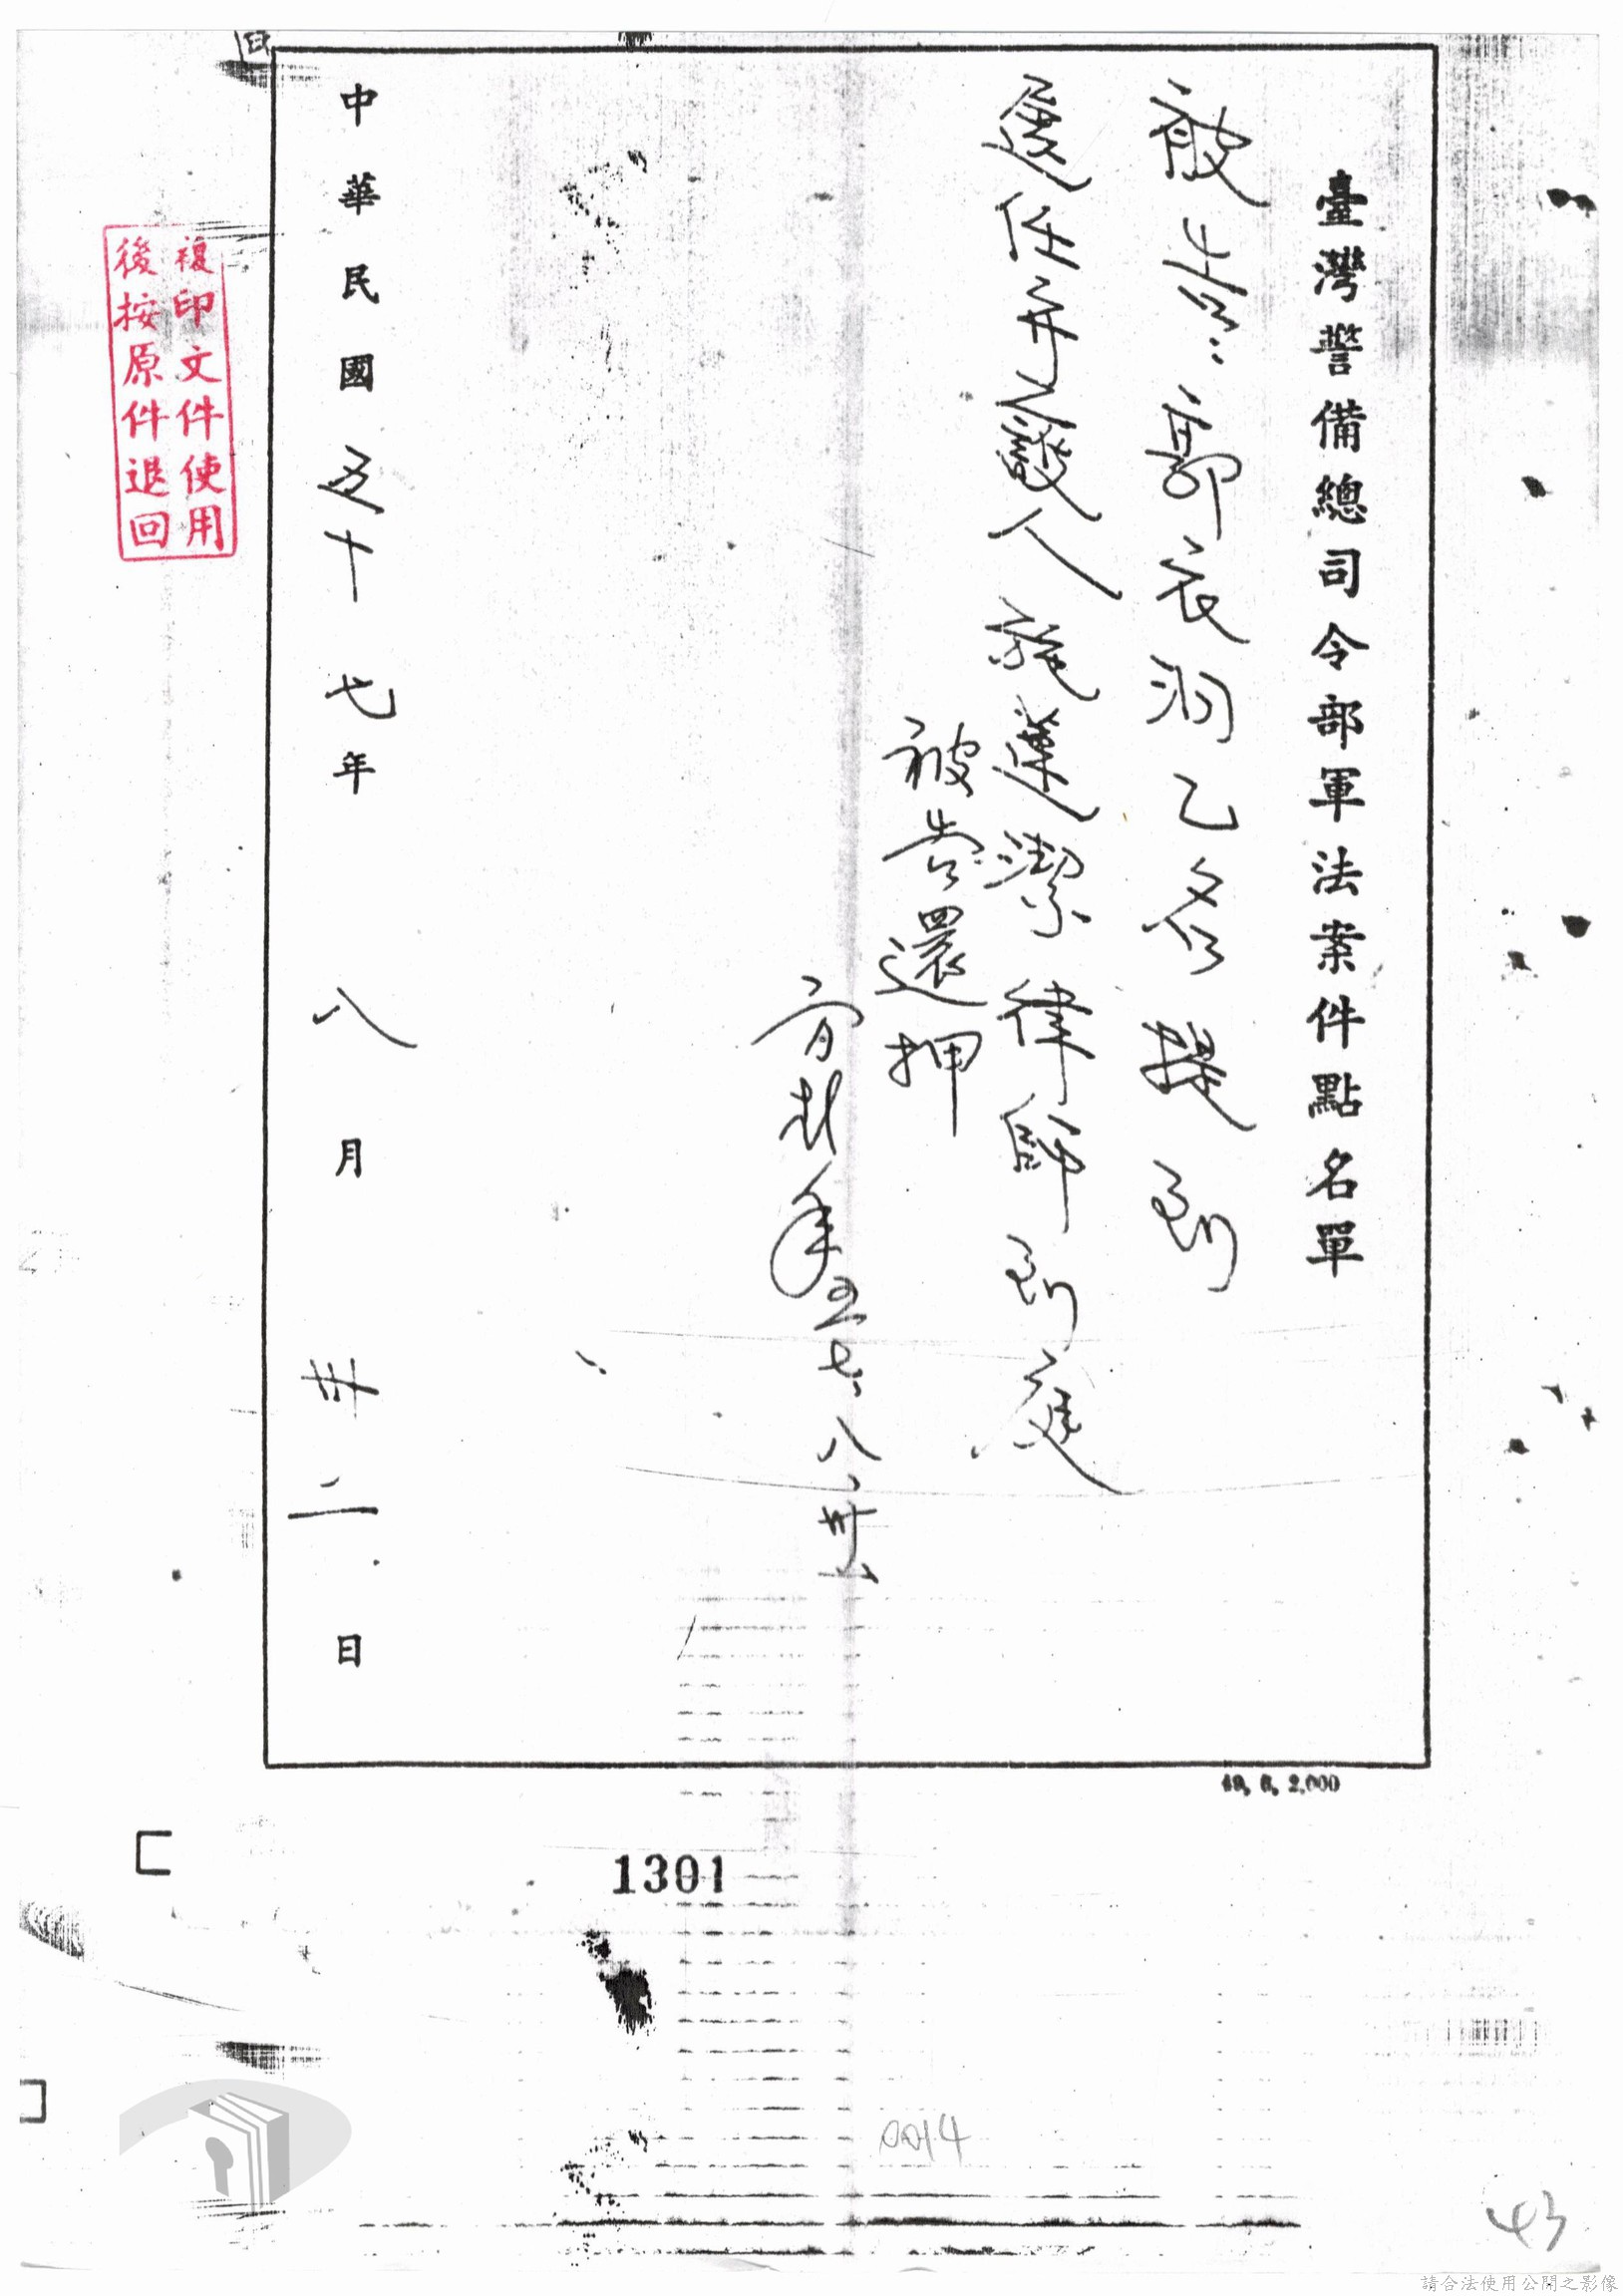 臺灣警備總司令部軍法案件點名單
被告:郭衣洞乙名提到
選任辯護人 蓮潔律師到庭
被告還押
五七、八、廿二
中華民國五十七年八月廿二日
複印文件使用
後按原件退回
2,000
1301
0014
43
請合法使用公開之影像